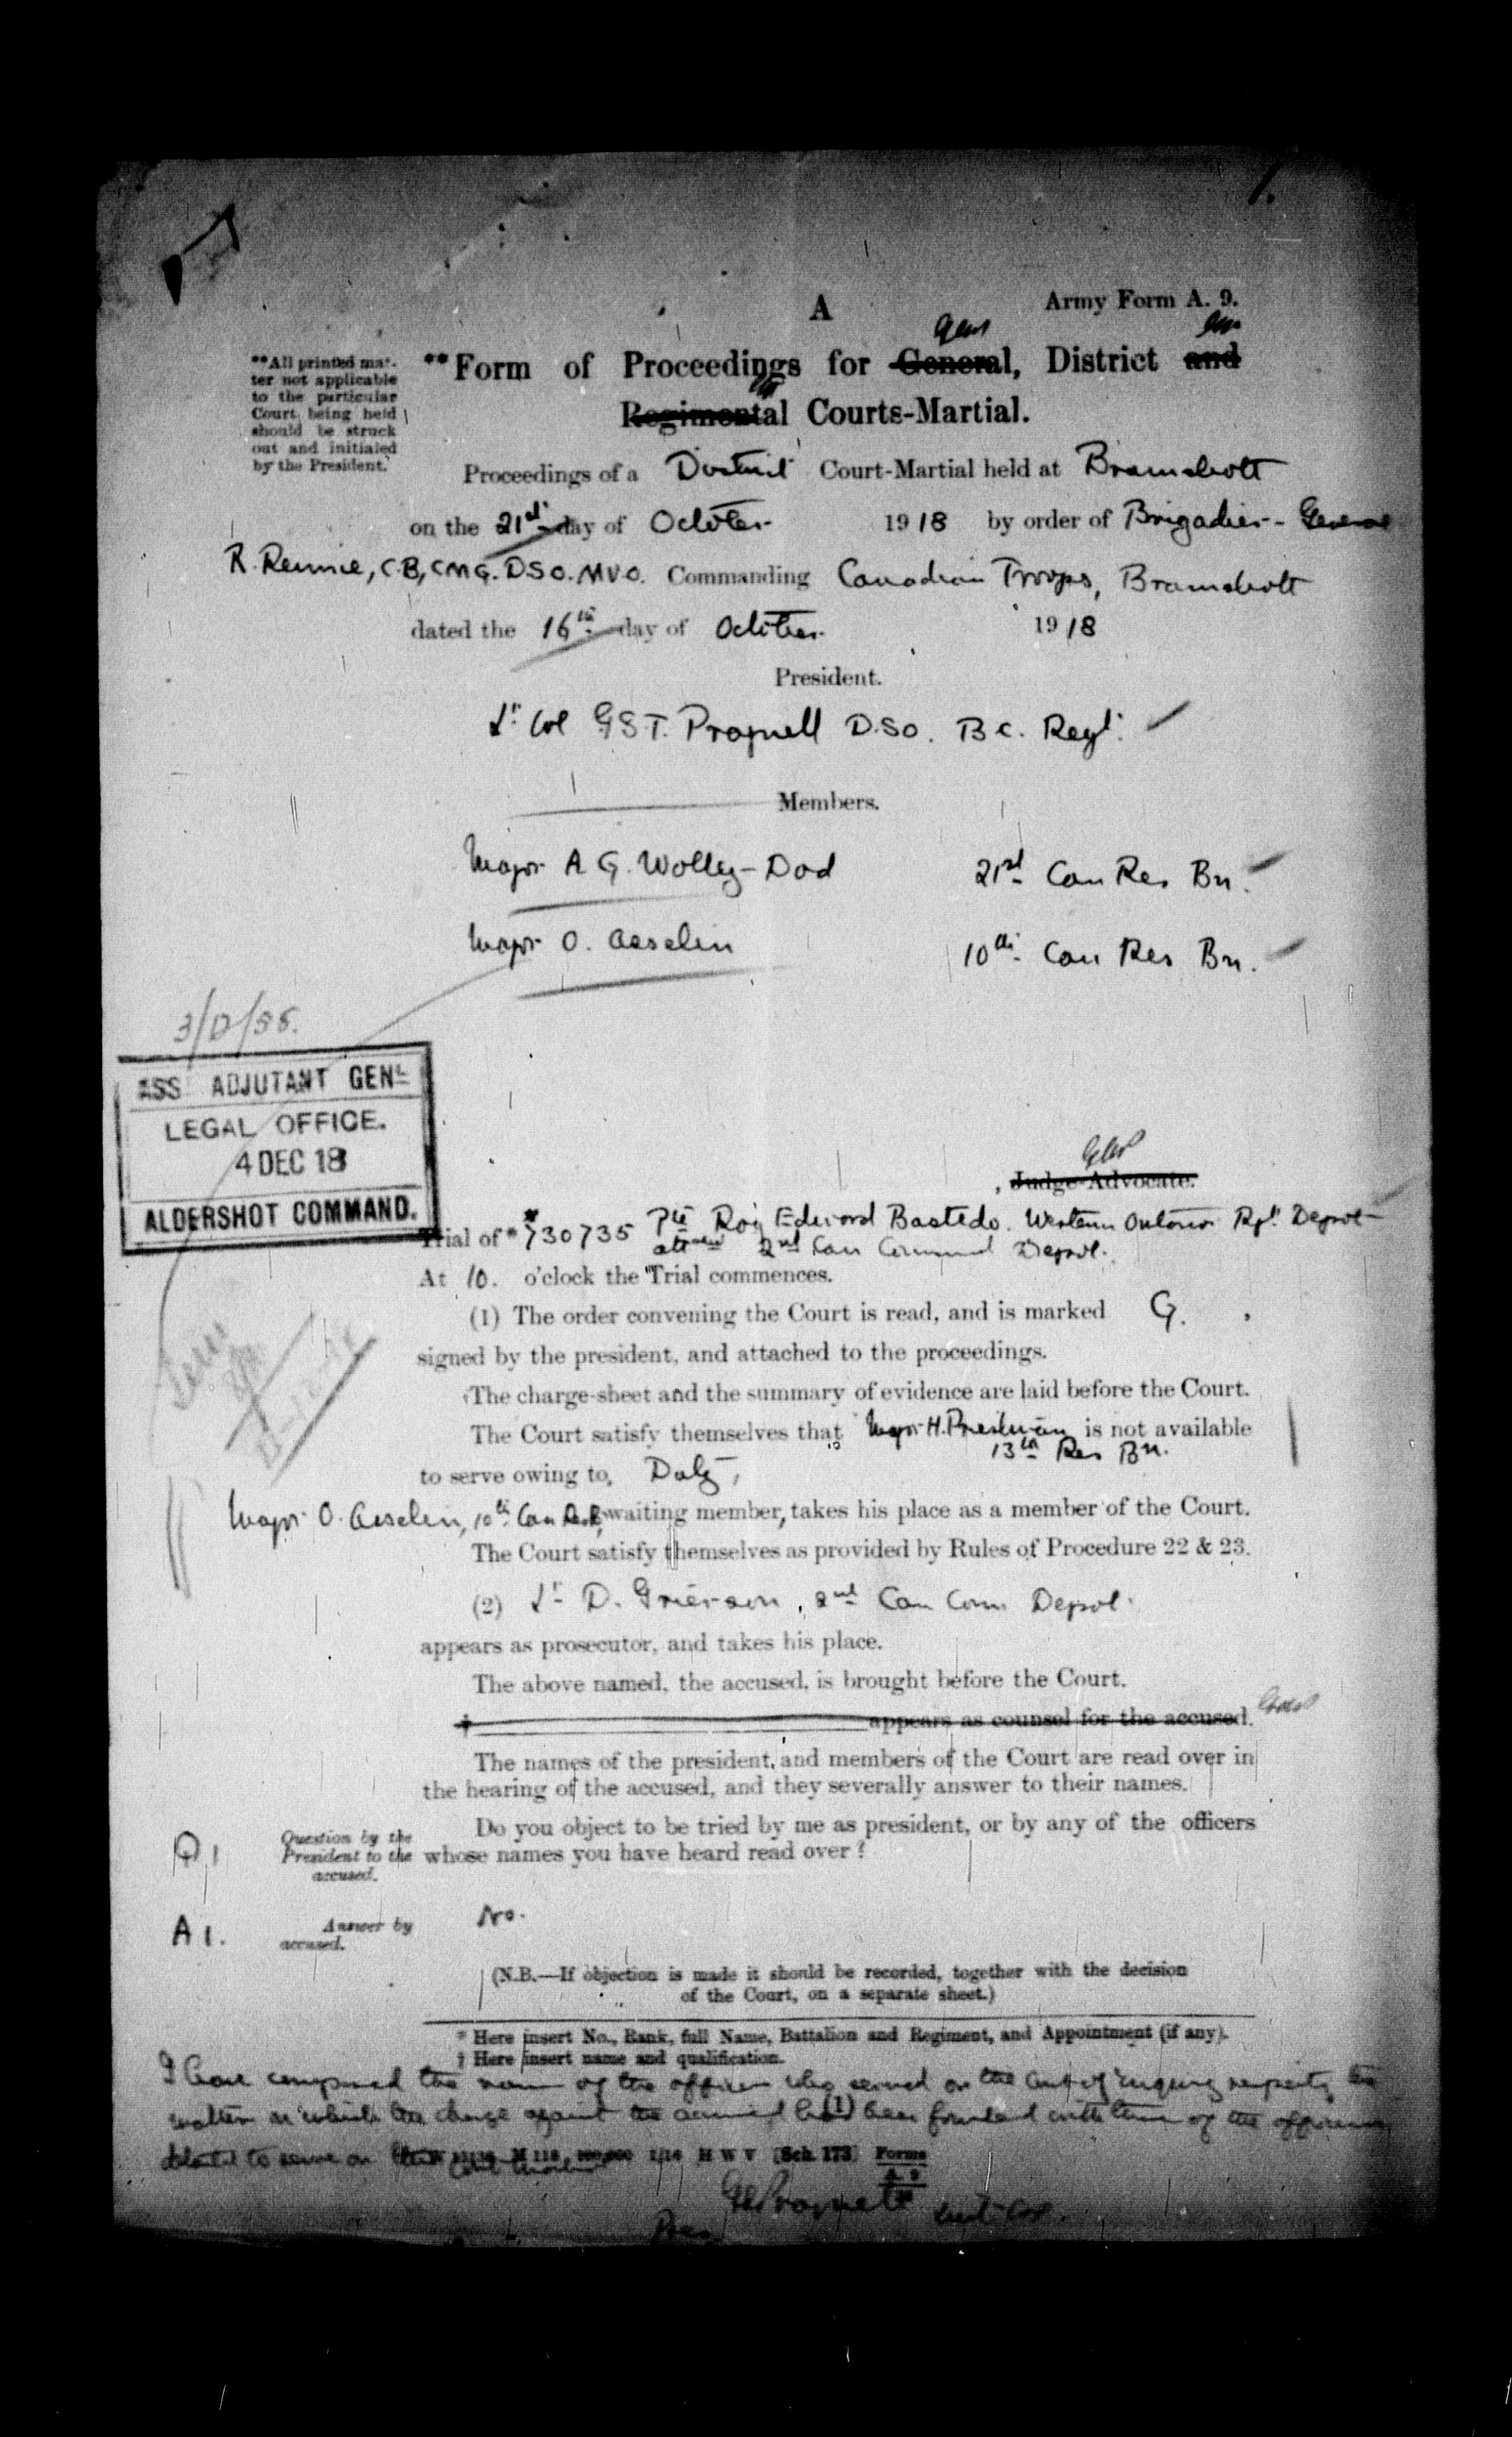 1.
A
Army Form A. 9.
**All printed mat-
ter not applicable
to the particular
Court being held
should be struck
out and initialed
by the President.
**Form of Proceedings for General, District and
Regimental Courts-Martial.
Proceedings of a District Court-Martial held at Bramshott
on the 21st day of October 1918 by order of Brigadier-General
R. Rennie, C.B, CMG. DSO. MVO. Commanding Canadian Troops, Bramshott
dated the 16th day of October 1918
President.
Lt Col G.S.T. Pragnell D.S.O. B.C. Regt.
Members.
Major A G. Wolley-Dod 21st Can Res Bn.
Major O. Asselin 10th Can Res Bn.
3/D/55.
ASS ADJUTANT GENL
LEGAL OFFICE.
4 DEC 18
ALDERSHOT COMMAND.
Judge-Advocate.
Trial of * 730735 Pte Roy Edward Bastedo. Western Ontario Rgt. Depot
att 2nd Can Command Depot.
At 10. o'clock the Trial commences.
(1) The order convening the Court is read, and is marked G.
signed by the president, and attached to the proceedings.
The charge-sheet and the summary of evidence are laid before the Court.
The Court satisfy themselves that Major H. is not available
13th Res Bn.
to serve owing to, Duty,
Major O. Asselin, 10th Can waiting member, takes his place as a member of the Court.
The Court satisfy themselves as provided by Rules of Procedure 22 & 23.
(2) Lt D. Grierson, 2nd Can Com Depot.
appears as prosecutor, and takes his place.
The above named, the accused, is brought before the Court.
† appears as counsel for the accused.
The names of the president, and members of the Court are read over in
the hearing of the accused, and they severally answer to their names.
Q 1
Question by the
President to the
accused.
Do you object to be tried by me as president, or by any of the officers
whose names you have heard read over?
A 1.
Answer by
accused.
No.
(N.B.—If objection is made it should be recorded, together with the decision
of the Court, on a separate sheet.)
* Here insert No., Rank, full Name, Battalion and Regiment, and Appointment (if any).
† Here insert name and qualification.
I have compared the names of the officers who served on the Court of inquiry respecting the
matters on which the charge against the accused has been founded with those of the officers
detailed to serve on this Court Martial
1/14 H W V (Sch. 173) Forms
GSPragnell Lieut-Col.
Pres